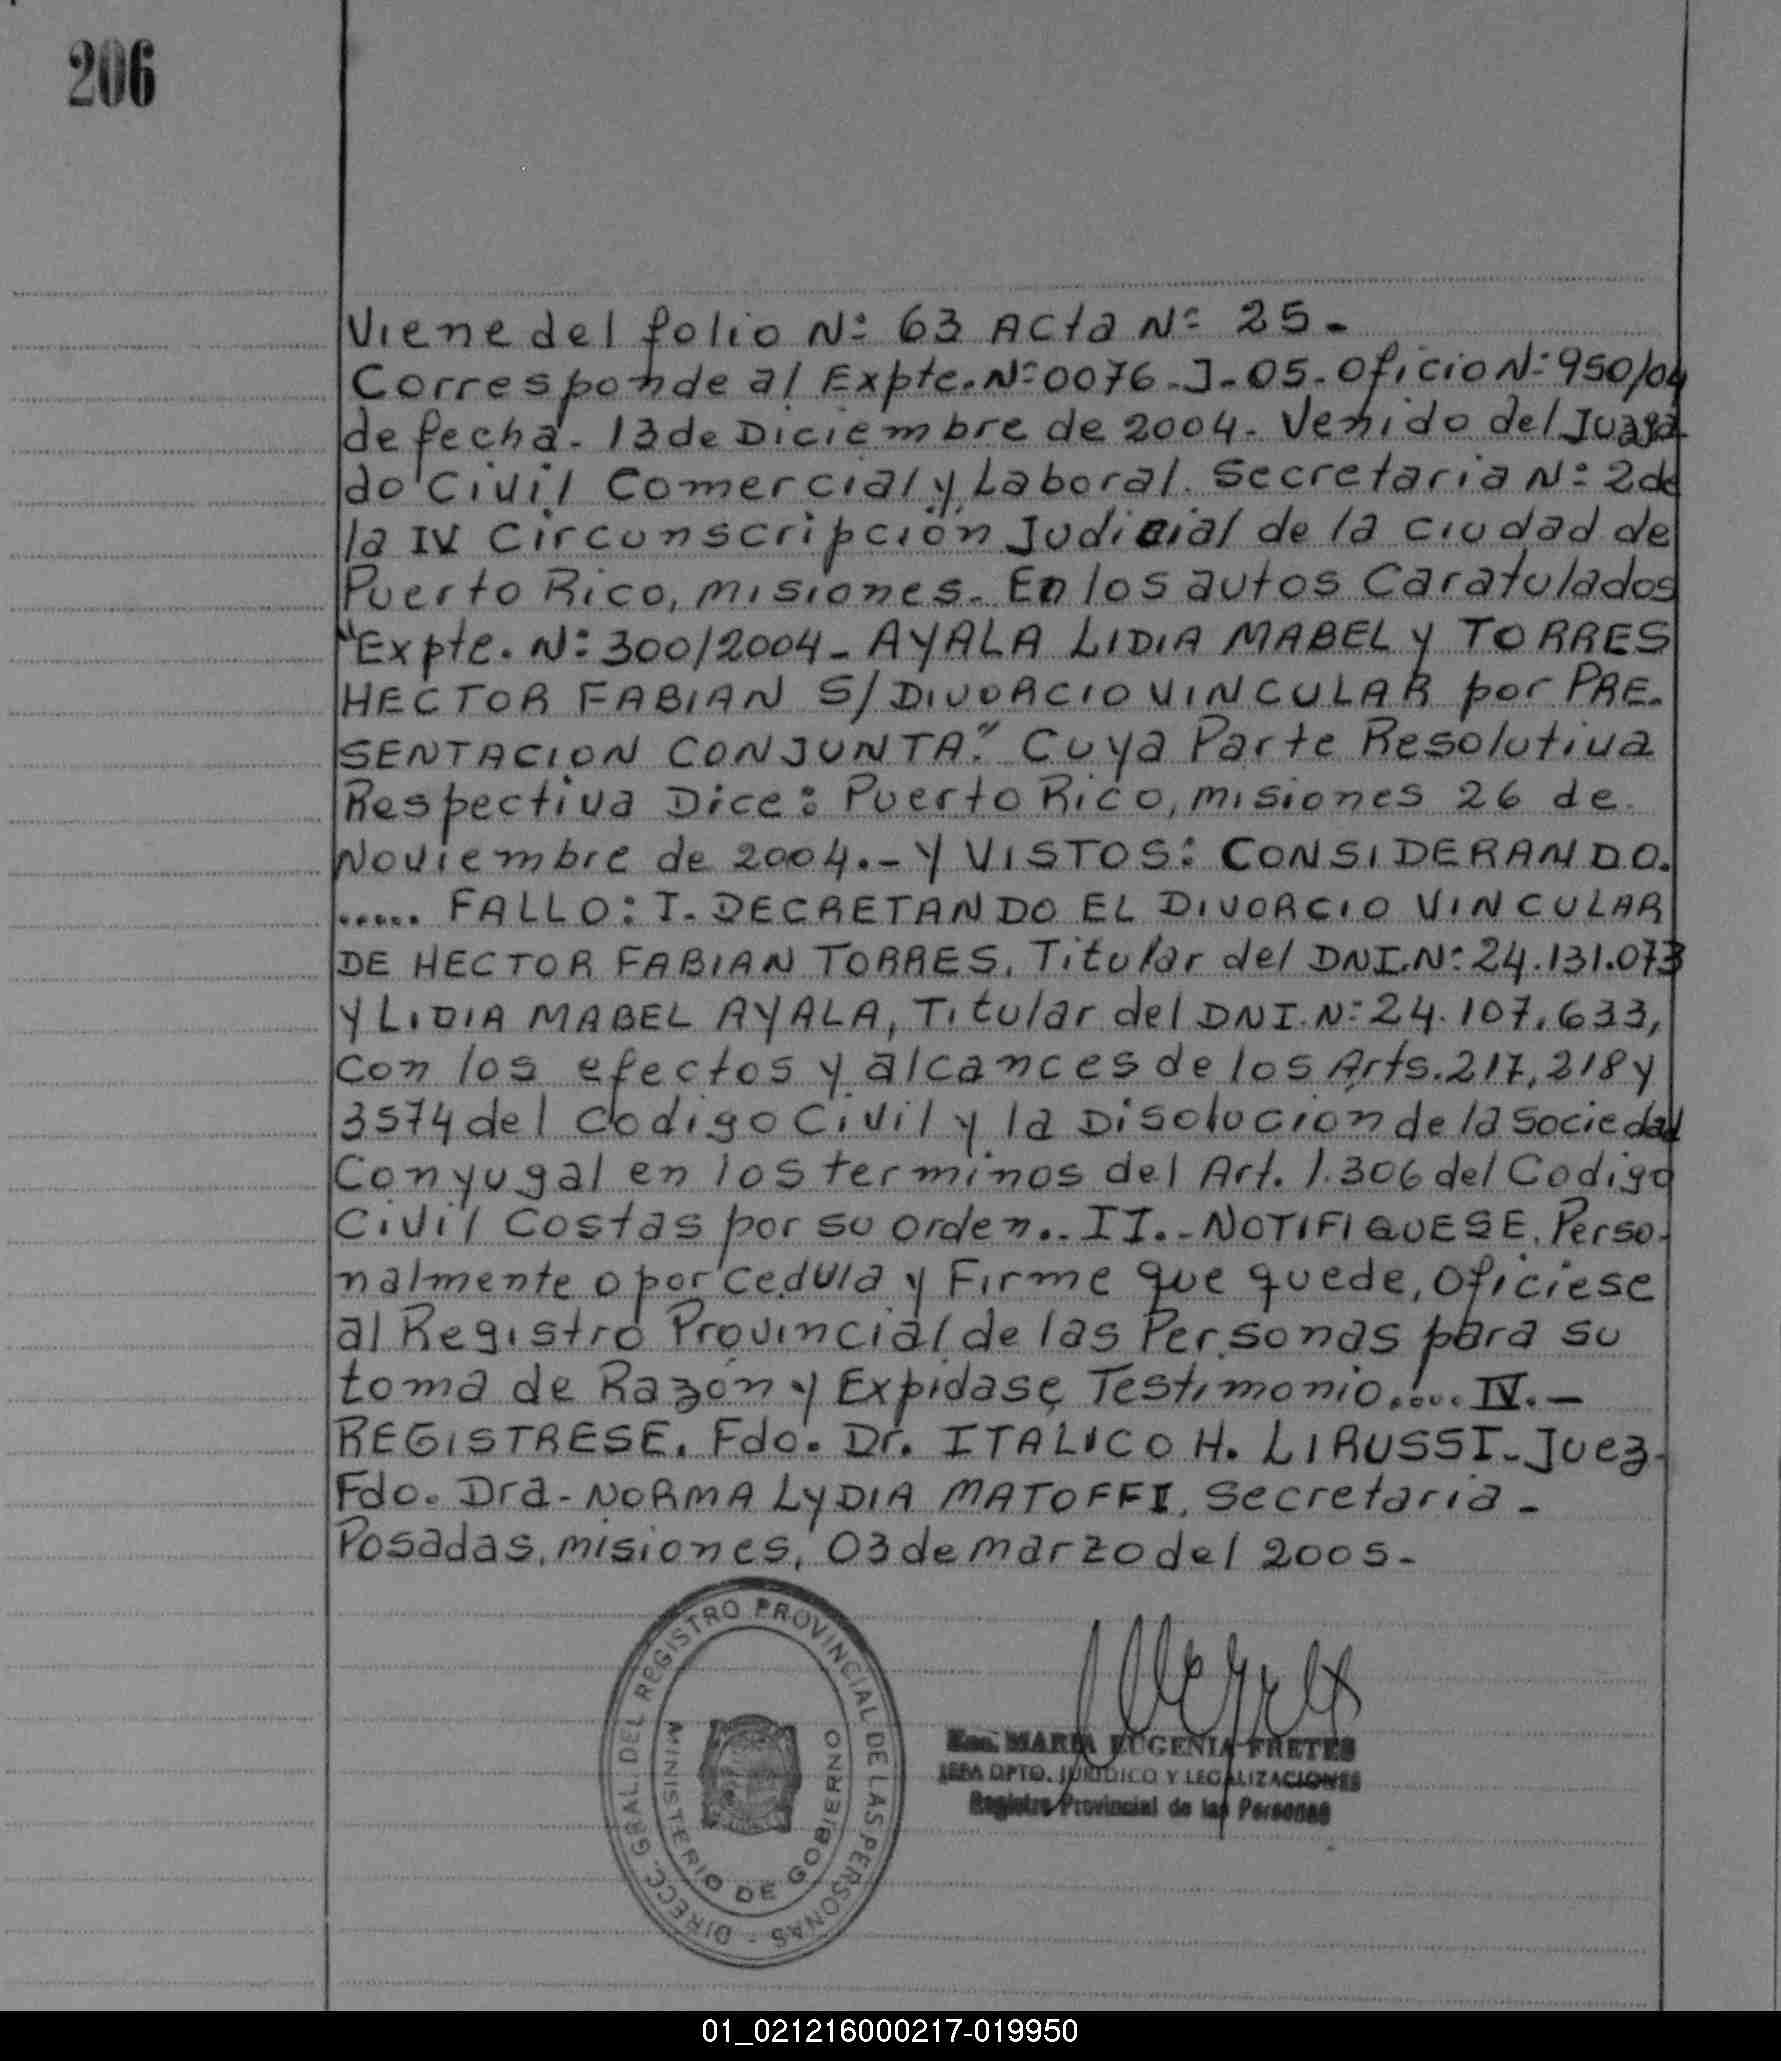 206
Viene del folio Nº 63 Acta Nº 25.-
Corresponde al Expte. Nº 0076-J-05. Oficio Nº 950/04
de fecha. 13 de Diciembre de 2004. Venido del Juzga
do Civil Comercial y Laboral. Secretaria Nº 2 de
la IV Circunscripción Judicial de la ciudad de
Puerto Rico, misiones. En los autos Caratulados
"Expte. Nº 300/2004- AYALA LIDIA MABEL y TORRES
HECTOR FABIAN S/DIVORCIO VINCULAR por PRE-
SENTACION CONJUNTA." Cuya Parte Resolutiva
Respectiva Dice: Puerto Rico, misiones 26 de
Noviembre de 2004.- Y VISTOS: CONSIDERANDO.
..... FALLO: I. DECRETANDO EL DIVORCIO VINCULAR
DE HECTOR FABIAN TORRES. Titular del DNI. Nº 24.131.073
Y LIDIA MABEL AYALA, Titular del DNI. Nº 24.107.633,
Con los efectos y alcances de los Arts. 217, 218 y
3574 del Codigo Civil y la Disolución de la Sociedad
Conyugal en los terminos del Art. 1.306 del Codigo
Civil Costas por su orden.. II.- NOTIFIQUESE. Perso-
nalmente o por cedula y Firme que quede, Oficiese
al Registro Provincial de las Personas para su
toma de Razón y Expidase Testimonio..... IV.-
REGISTRESE. Fdo. Dr. ITALICO H. LIRUSSI- Juez-
Fdo. Dra- NORMA LYDIA MATOFFI. Secretaria-
Posadas, misiones, 03 de marzo del 2005-
DIRECC. GRAL. DEL REGISTRO PROVINCIAL DE LAS PERSONAS -
MINISTERIO DE GOBIERNO
MARIA EUGENIA FRETES
JEFA DPTO. JURIDICO Y LEGALIZACIONES
Registro Provincial de las Personas
01_021216000217-019950